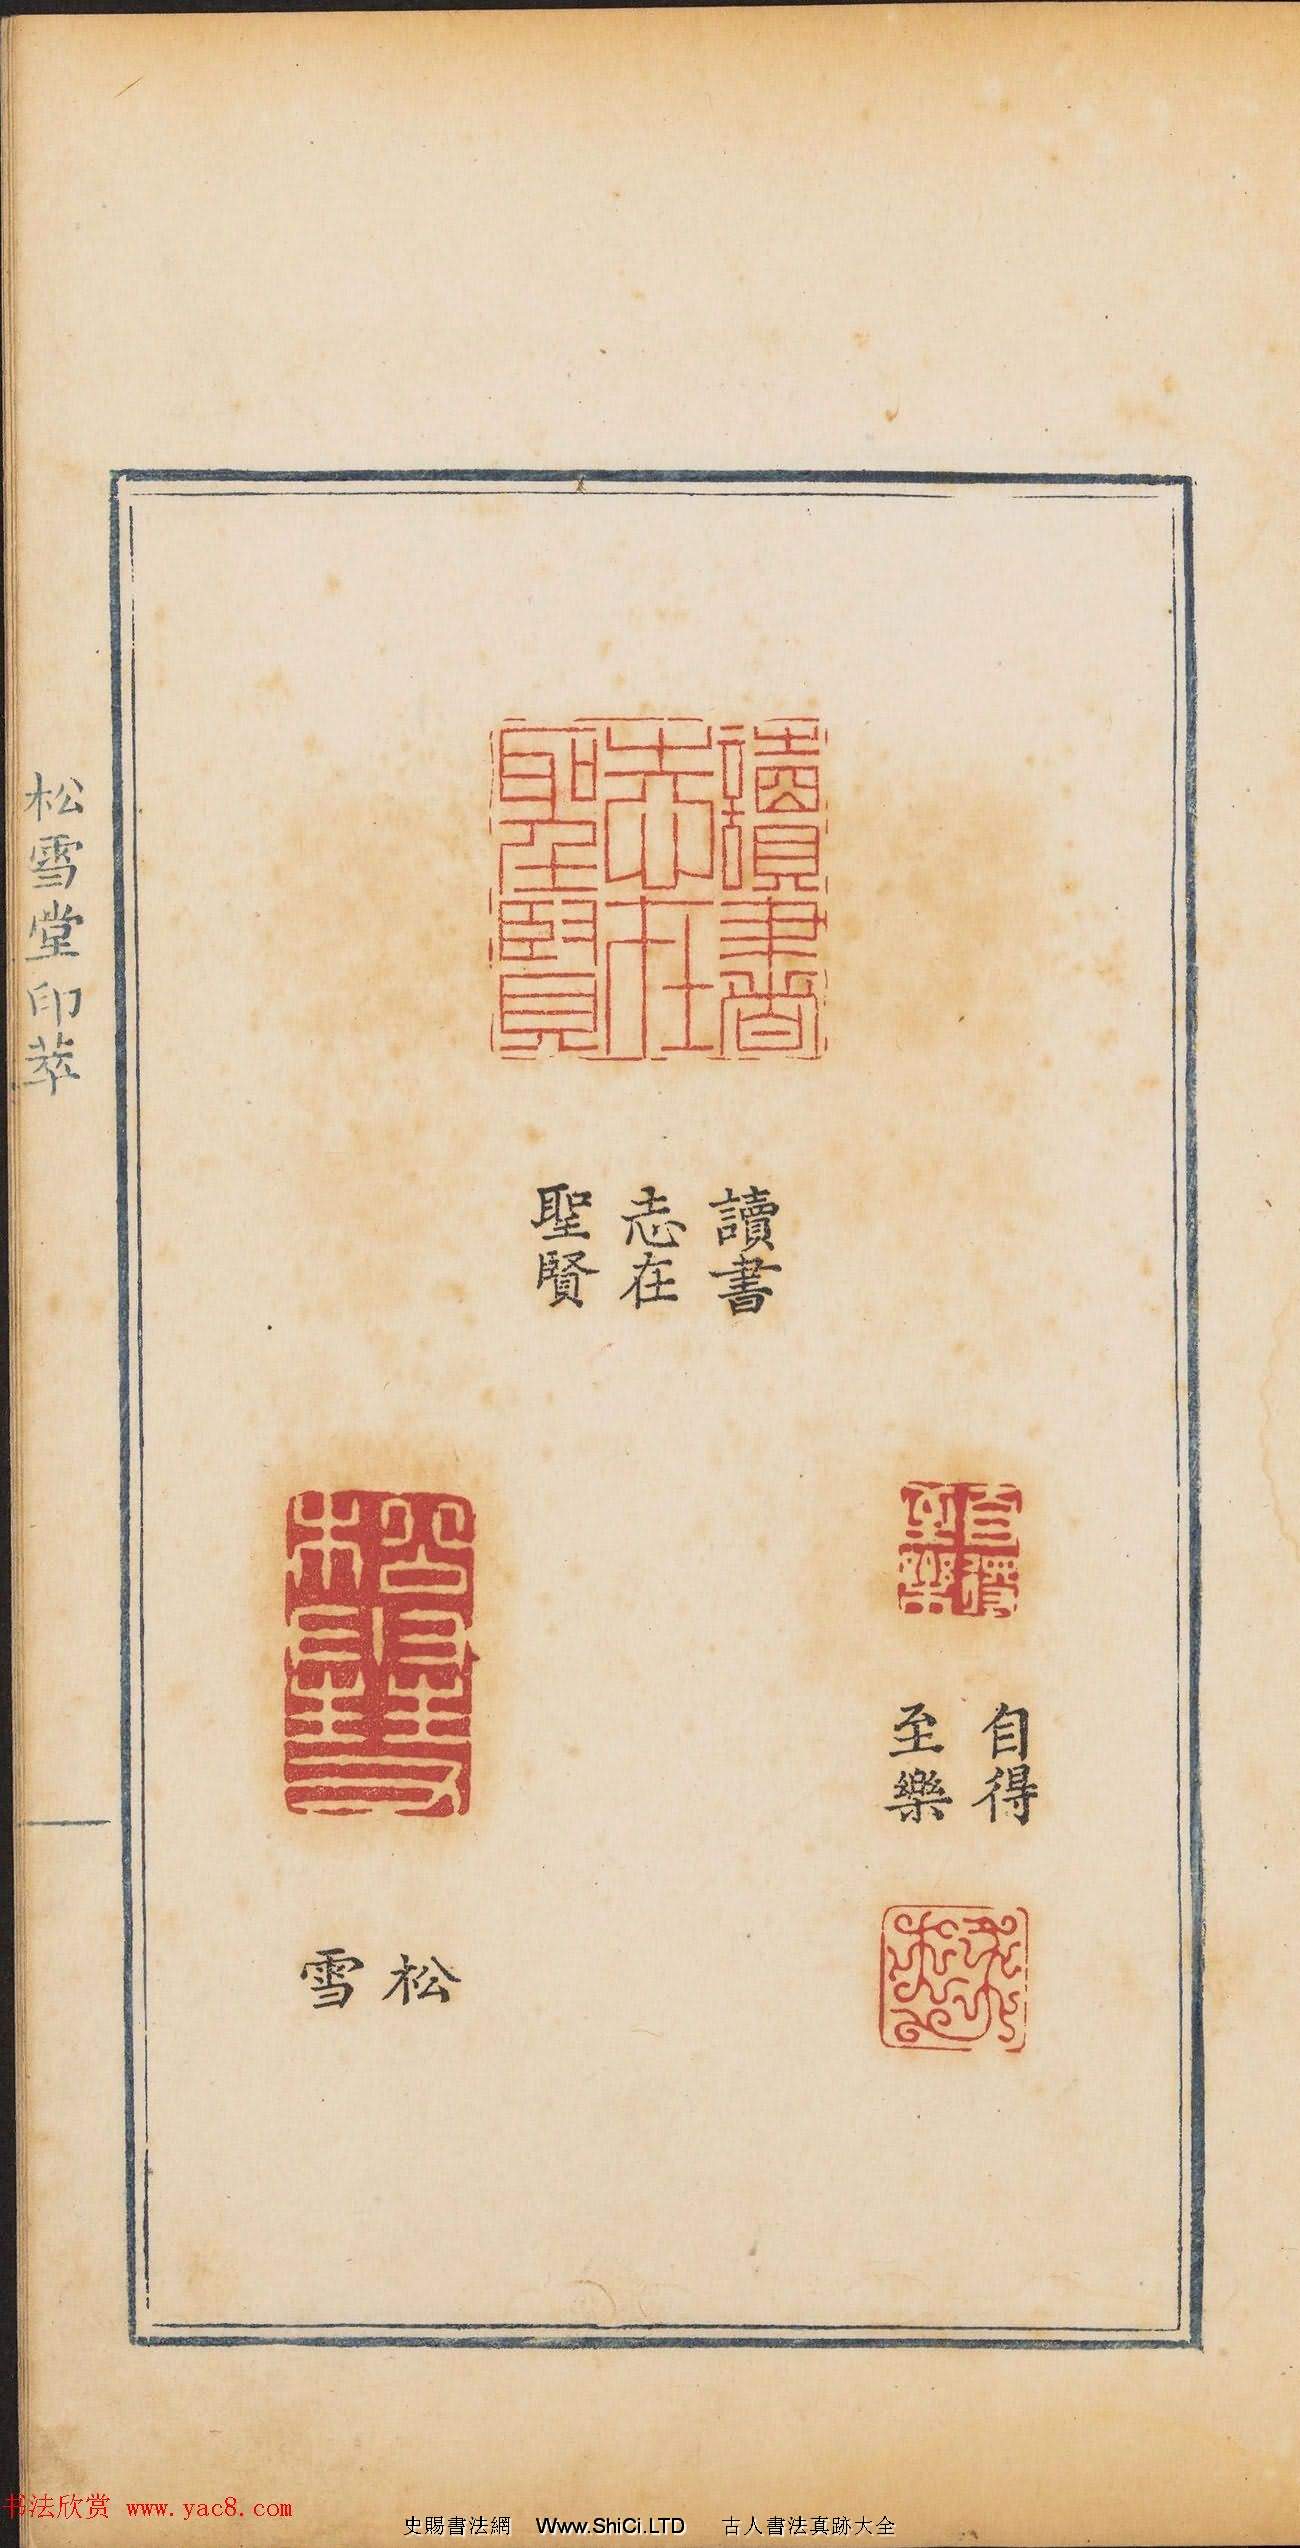 松雪堂印萃
讀書
志在
聖賢
讀書
志在
聖賢
自得
至樂
自得
至樂
松雪
松
雪
书法欣赏 www.yac8.com
史賜書法網 Www.ShiCi.LTD 古人書法真跡大全